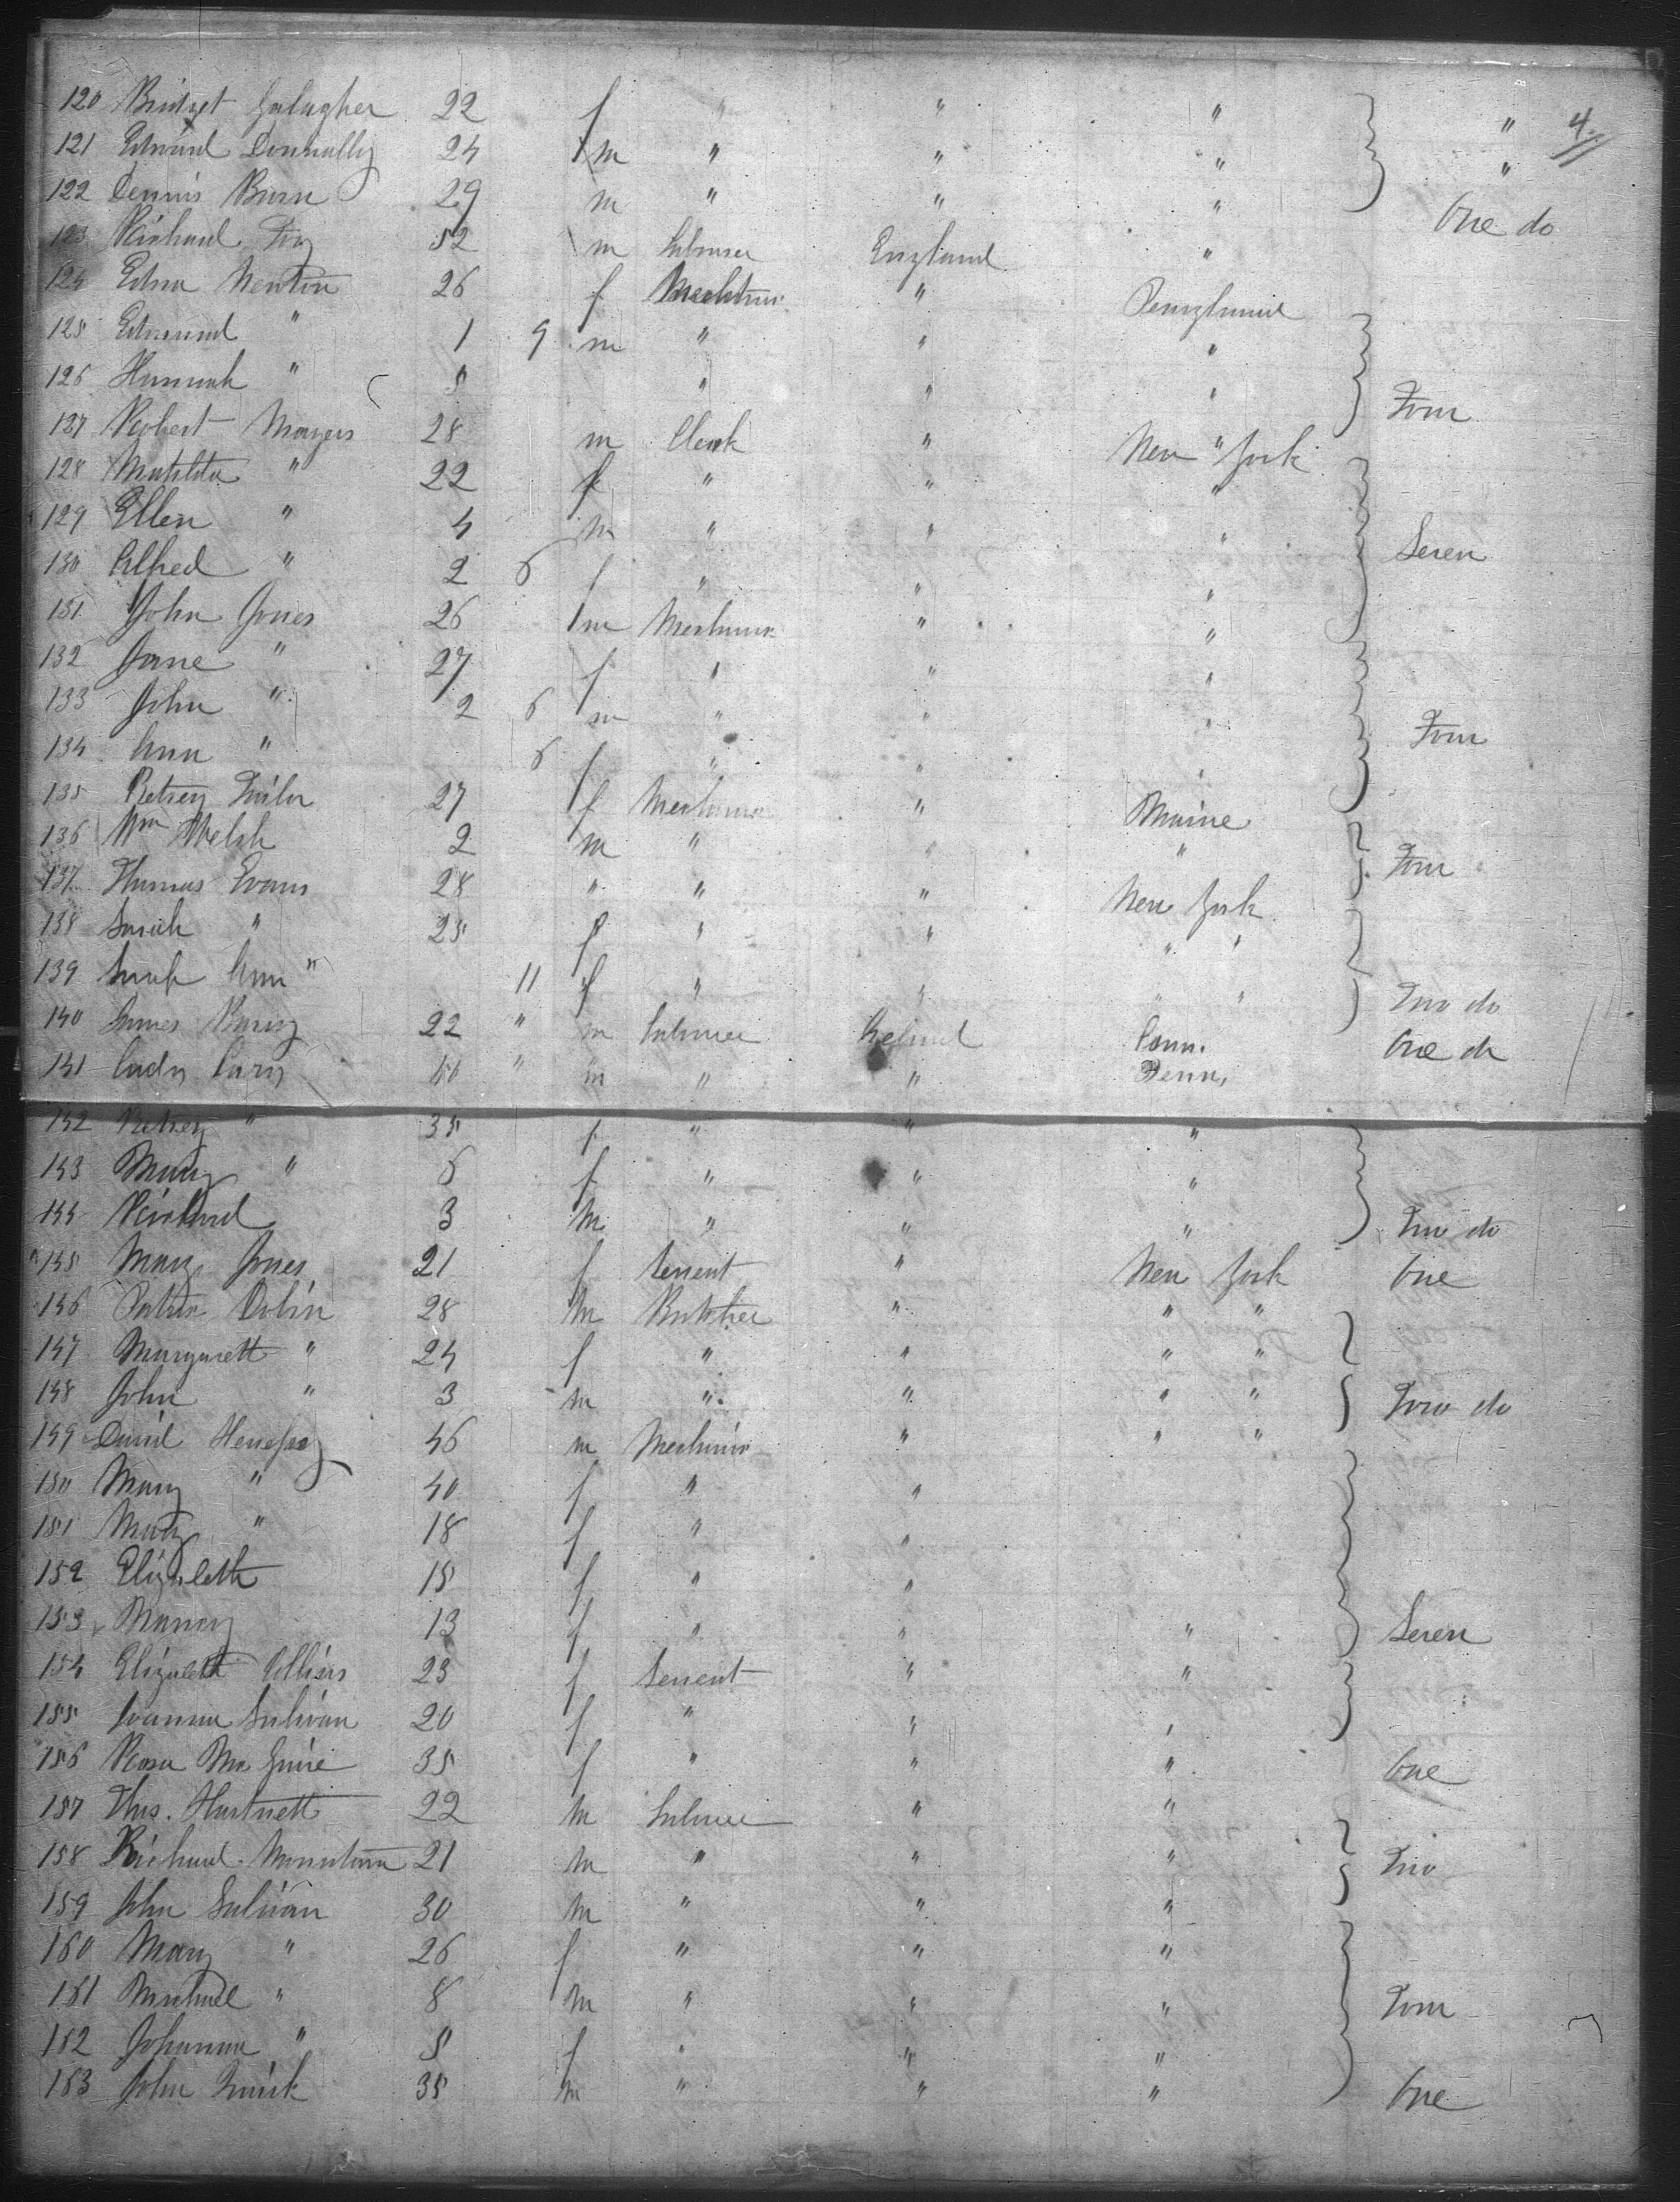 4
120 Bridget Galagher 22 f " " " "
121 Edward Donnally 24 m " " " "
122 Dennis Burn 29 m " " " One do
123 Richard Foy 52 m Laborer England "
124 Edna Newton 26 f Mechanic " Pensylvania
125 Edmund " 1 9 m " " "
126 Hannah " 5 " " " Four
127 Robert Mayers 28 m Clerk " New York
128 Matilda " 22 f " " "
129 Ellen " 4 m " " " Seven
130 Alfred " 2 6 f " " "
131 John Jones 26 m Mechanic " "
132 Jane " 27 f " " "
133 John " 2 6 m " " "
134 Ann " 6 f " " " Four
135 Betsey 27 f Mechanic " Maine
136 Wm Welsh 2 m " " " Four
137 Thomas Evans 28 " " " New York
138 Sarah " 25 f " " " "
139 Sarah Ann " 11 f " " " " Two do
140 James Barry 22 " m Laborer Ireland Conn. One do
141 Cady Cary 40 " m " " Penn,
142 Betsey " 35 f " " "
143 Mary " 6 f " " "
144 Richard 3 m " " " Two do
145 Mary Jones 21 f Servent " New York One
146 Patric Dobin 28 m Butcher " " "
147 Margarett " 24 f " " " "
148 John " 3 m " " " " Two do
149 David Henessy 46 m Mechanic " " "
150 Mary " 40 f " "
151 Mary " 18 f " "
152 Elizabeth 15 f " "
153 Nancy 13 f " " " Seven
154 Elizabeth Collins 23 f Servent " "
155 Joanna Sulivan 20 f " " "
156 Rosa Mc Guire 35 f " " " One
157 Thos. Hartnett 22 m Laborer " "
158 Richard Mountain 21 m " " " Two
159 John Sulivan 30 m " " "
160 Mary " 26 f " " "
161 Michael " 8 m " " " Four
162 Johanna " 5 f " " "
163 John Quirk 35 m " " " One